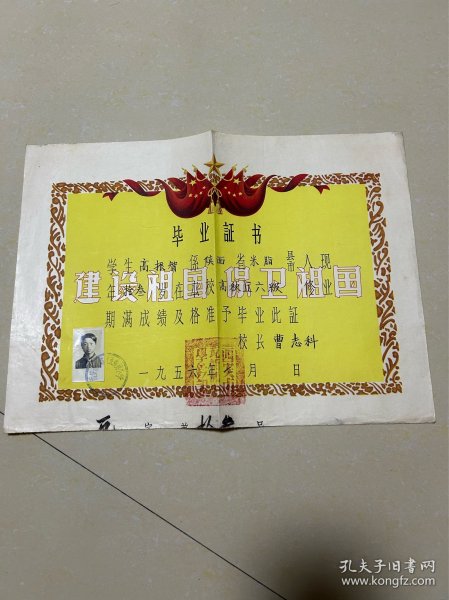 毕业証书
学生高振智係陕西省米脂县市人现
年 岁在本校高级五六级修业
建设祖国 保卫祖国
期满成绩及格准予毕业此証
校长曹志科
一九五六年七月 日
字第拾叁号
孔夫子旧书网
www.kongfz.com